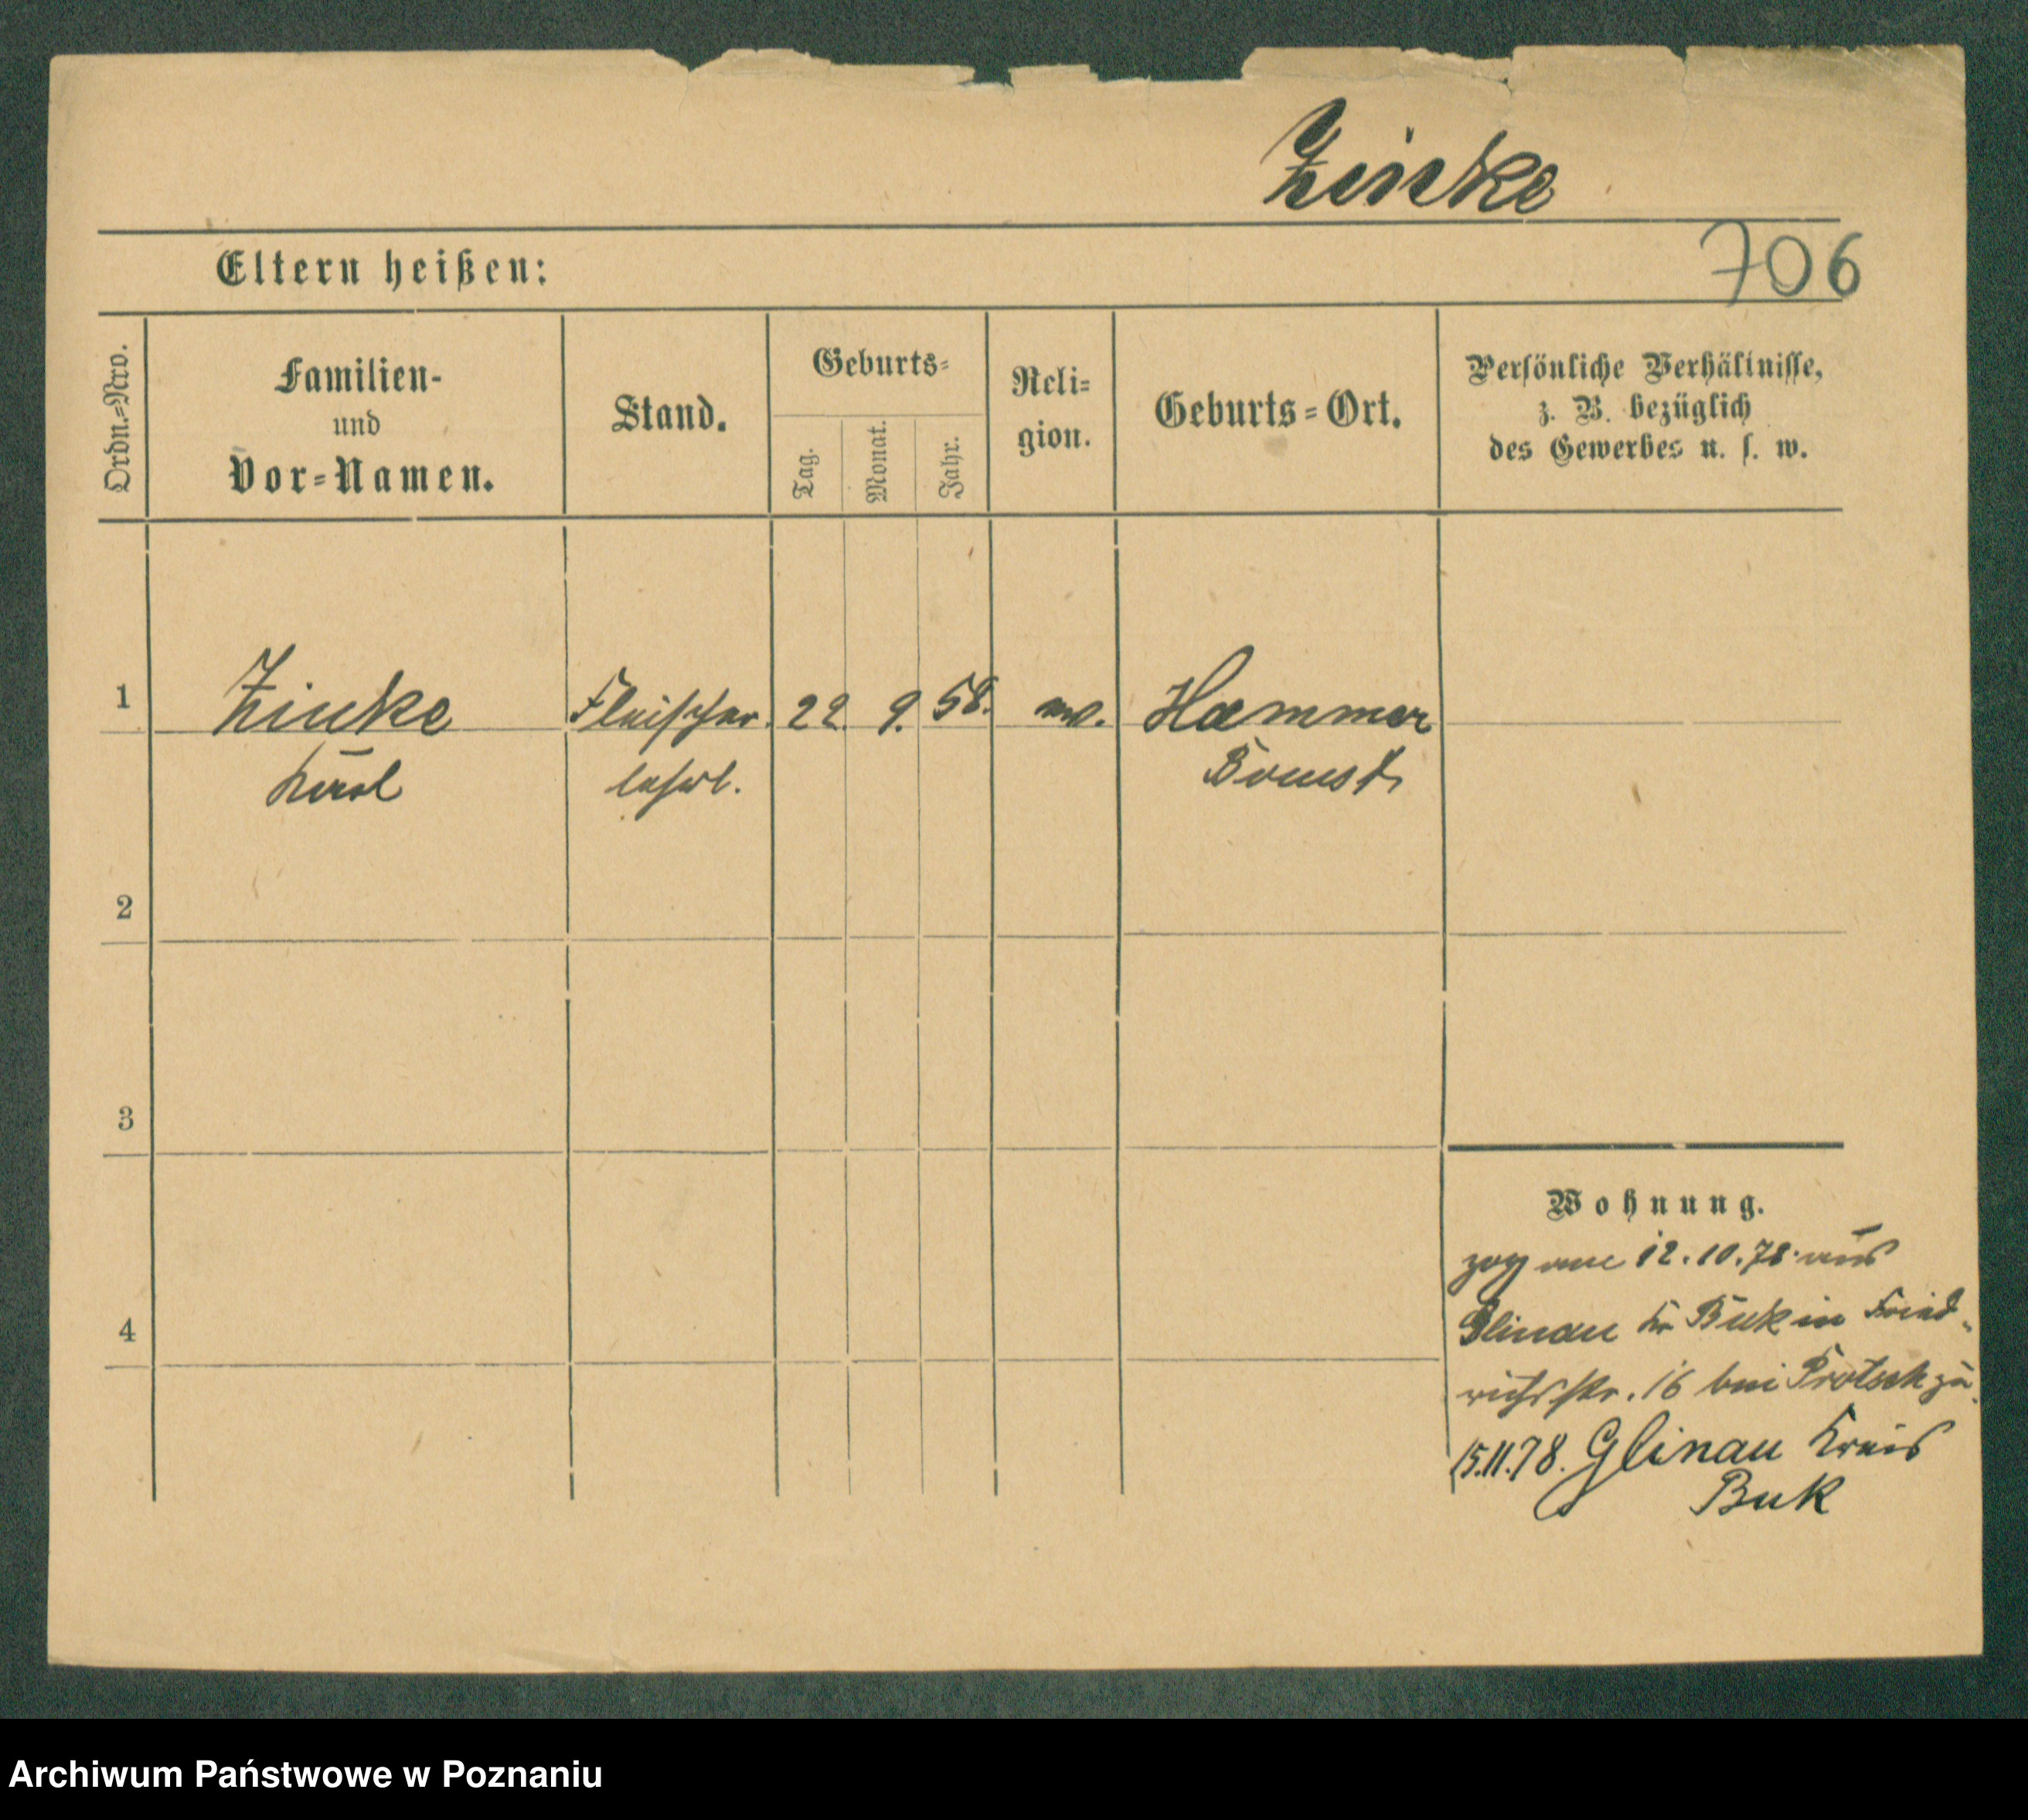 Zinke
706
Eltern heißen:
Ordn.=Nro.
Familien-
und
Vor=Namen.
Stand.
Geburts=
Tag.
Monat.
Jahr.
Reli=
gion.
Geburts=Ort.
Persönliche Verhältnisse,
z. B. bezüglich
des Gewerbes u. s. w.
1
Zinke
Karl
Fleischer
lehrl.
22. 9. 58.
ev.
Hammer
Bomst
2
3
4
Wohnung.
zog am 12.10.78. aus
Glinau Kr Buk in Fried-
richsstr. 16 bei Protsch zu.
15.11.78. Glinau Kreis
Buk
Archiwum Państwowe w Poznaniu